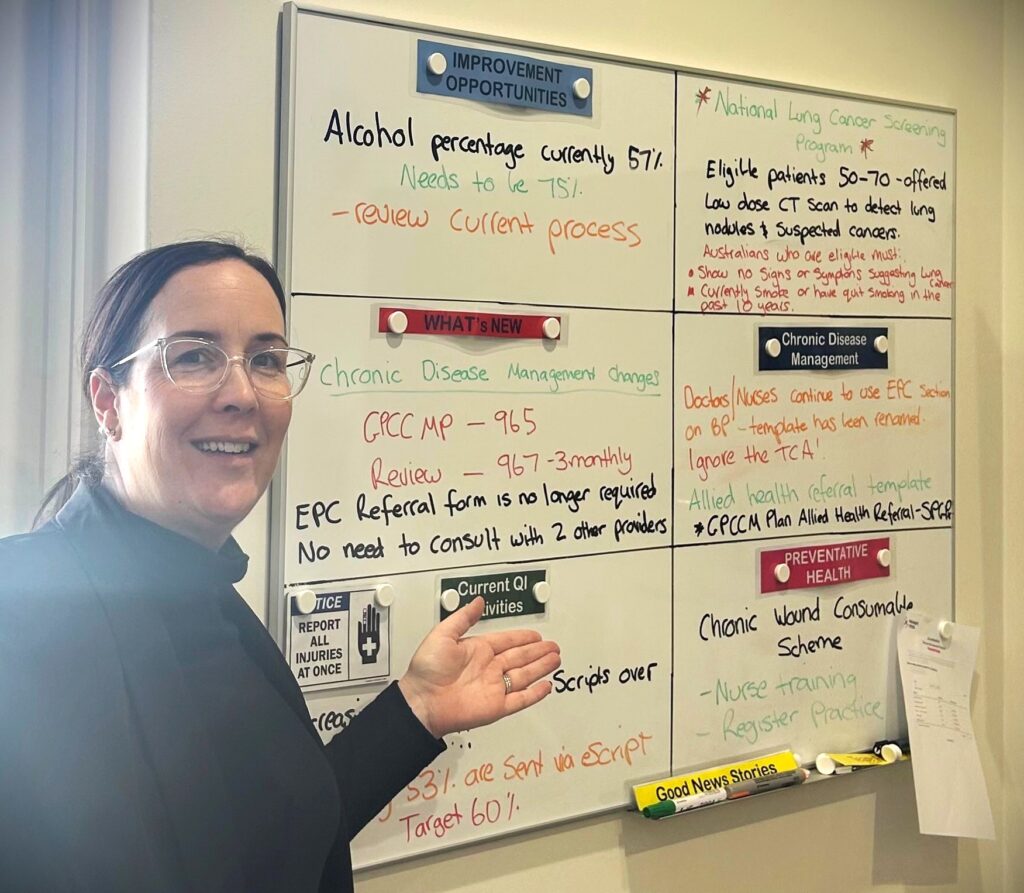 IMPROVEMENT
OPPORTUNITIES
Alcohol percentage currently 57%
Needs to be 75%
-review current process
* National Lung Cancer Screening
Program *
Eligible patients 50-70 -offered
Low dose CT Scan to detect lung
nodules & Suspected cancers.
Australians who are eligible must:
• Show no Signs or Symptoms suggesting Lung
Cancer
• Currently Smoke or have quit smoking in the
past 10 years.
WHAT's NEW
Chronic Disease Management changes
GPCCMP - 965
Review - 967 -3monthly
EPC Referral form is no longer required
No need to consult with 2 other providers
Chronic Disease
Management
Doctors/Nurses continue to use EPC Section
on BP - template has been renamed.
Ignore the TCA!
Allied health referral template
*GPCCM Plan Allied Health Referral-
Current QI
tivities
TICE
REPORT
ALL
INJURIES
AT ONCE
Scripts over
creas
53% are Sent via eScript
Target 60%
PREVENTATIVE
HEALTH
Chronic Wound Consumable
Scheme
-Nurse training
- Register Practice
Good News Stories